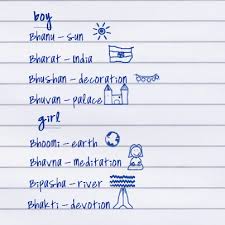 boy
Bhanu – sun
Bharat – india
Bhushan – decoration
Bhuvan – palace
girl
Bhoomi – earth
Bhavna – meditation
Bipasha – river
Bhakti – devotion